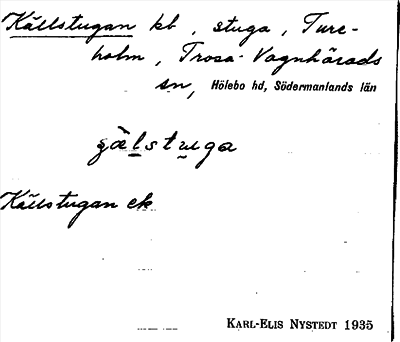 Källstugan kb, stuga, Ture-
holm, Trosa-Vagnhärads
sn, Hölebo hd, Södermanlands län
gälstuga
Källstugan ek
KARL-ELIS NYSTEDT 1935